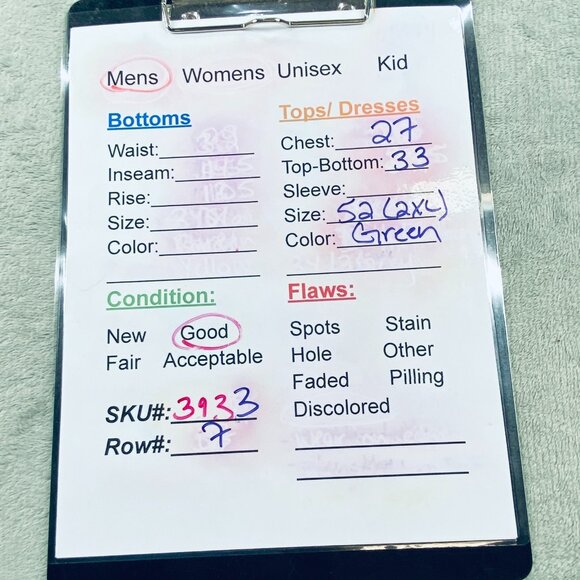 Mens Womens Unisex Kid
Bottoms
Waist:
Inseam:
Rise:
Size:
Color:
Tops/ Dresses
Chest: 27
Top-Bottom: 33
Sleeve:
Size: 52 (2XL)
Color: Green
Condition:
New Good
Fair Acceptable
SKU#: 3933
Row#: 7
Flaws:
Spots Stain
Hole Other
Faded Pilling
Discolored